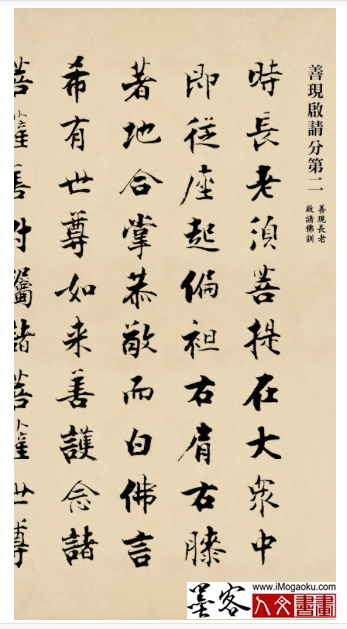 善現啟請分第二
善現長老
啟請佛訓
時長老須菩提在大眾中
即從座起偏袒右肩右膝
著地合掌恭敬而白佛言
希有世尊如来善護念諸
菩薩善付囑諸菩薩世尊
墨客
www.iMogaoku.com
人文書畫